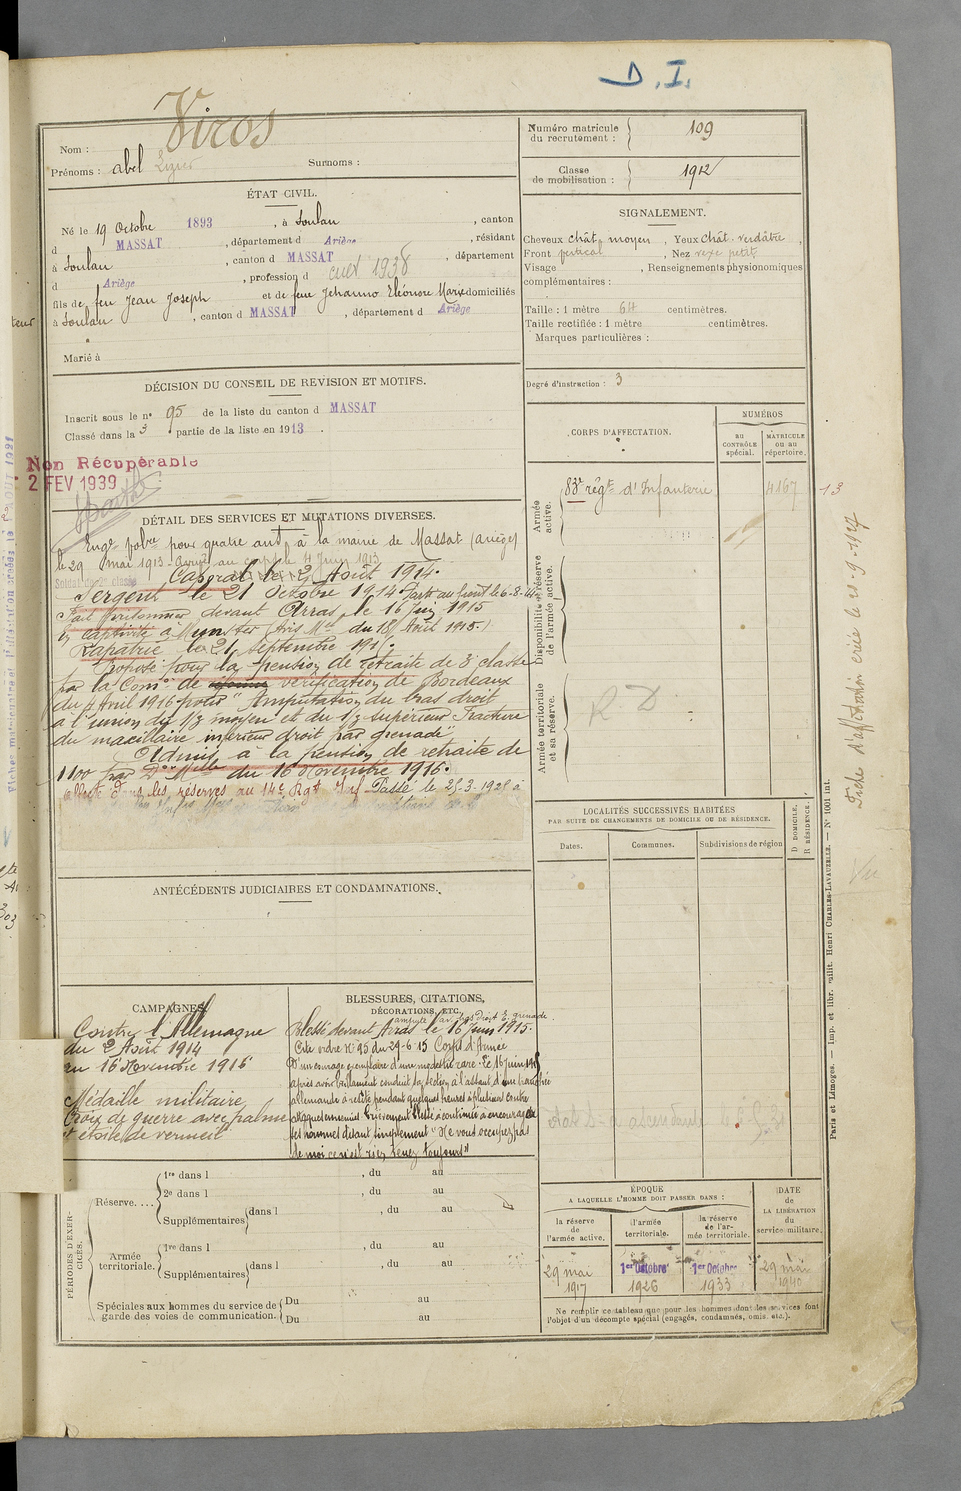 D.I.
Viros
Nom :
Prénoms : abel Lizier Surnoms :
Numéro matricule du recrutement : 109
Classe de mobilisation : 1912
ÉTAT CIVIL.
Né le 19 Octobre 1893, à Soulan, canton
d MASSAT, département d Ariège, résidant
à Soulan, canton d MASSAT, département
d Ariège, profession d cult 1938
fils de feu Jean Joseph et de feue Jehanno Eléonore Marie domiciliés
à Soulan, canton d MASSAT, département d Ariège
Marié à
SIGNALEMENT.
Cheveux chât. moyen, Yeux chât. verdâtre,
Front vertical, Nez vexe petit,
Visage , Renseignements physionomiques
complémentaires :
Taille : 1 mètre 64 centimètres.
Taille rectifiée : 1 mètre centimètres.
Marques particulières :
Degré d'instruction : 3
DÉCISION DU CONSEIL DE REVISION ET MOTIFS.
Inscrit sous le nº 95 de la liste du canton d MASSAT
Classé dans la 3 partie de la liste en 1913.
Non Récupérable
2 FEV 1939
CORPS D'AFFECTATION.
NUMÉROS
au CONTRÔLE spécial.
MATRICULE ou au répertoire.
Armée active.
83e régt d'Infanterie 4167
13
Disponibilité et réserve de l'armée active.
Armée territoriale et sa réserve.
R. D
DÉTAIL DES SERVICES ET MUTATIONS DIVERSES.
Engé volre pour quatre ans, à la mairie de Massat (ariège)
le 29 mai 1913. Arrivé au corps le 4 Juin 1913
Soldat de 2e classe
Caporal le 2 Août 1914.
Sergent le 21 Octobre 1914. Parti au front le 6-8-14
Fait prisonnier devant Arras, le 16 Juin 1915
En captivité à Munster (Avis Mel du 18 Août 1915.)
Rapatrié le 21 Septembre 191
Proposé pour la pension de retraite de 3e classe
par la Comon de réforme vérification de Bordeaux
du 4 Avril 1916 pour "Amputation du bras droit
à l'union du 1/3 moyen et du 1/3 supérieur Fracture
du maxillaire inférieur droit par grenade"
Admis à la pension de retraite de
1100 par Don Mlle du 16 Novembre 1916.
Affecté dans les réserves au 14e Rgt Inf Passé le 25-3-1928 à
LOCALITÉS SUCCESSIVES HABITÉES
PAR SUITE DE CHANGEMENTS DE DOMICILE OU DE RÉSIDENCE.
Dates. Communes. Subdivisions de région
D DOMICILE. R RÉSIDENCE.
ANTÉCÉDENTS JUDICIAIRES ET CONDAMNATIONS.
CAMPAGNES.
Contre l'Allemagne
du 2 Août 1914
au 16 Novembre 1916
Médaille militaire
Croix de guerre avec palme
et étoile de vermeil
BLESSURES, CITATIONS,
DÉCORATIONS, ETC.
amputé av. bras droit E. grenade
Blessé devant Arras le 16 Juin 1915.
Cité ordre Nº 95 du 29-6-15 Corps d'Armée
D'un courage exemplaire d'une modestie rare. Le 16 Juin 1915
après avoir brillament conduit sa section à l'assaut d'une tranchée
allemande a resisté pendant quelques heures à plusieurs contre
attaques ennemies. Grièvement blessé a continué à encourager
ses hommes disant simplement "Ne vous occupez pas
de moi ce n'est rien tenez toujours"
PÉRIODES D'EXERCICES.
Réserve....
1re dans l , du au
2e dans l , du au
Supplémentaires dans l , du au
Armée territoriale.
1re dans l , du au
Supplémentaires dans l , du au
Spéciales aux hommes du service de garde des voies de communication.
Du au
Du au
ÉPOQUE
A LAQUELLE L'HOMME DOIT PASSER DANS :
la réserve de l'armée active.
l'armée territoriale.
la réserve de l'armée territoriale.
DATE de LA LIBÉRATION du service militaire.
29 mai 1917
1er Octobre 1926
1er Octobre 1933
29 mai 1940
Ne remplir ce tableau que pour les hommes dont les services font
l'objet d'un décompte spécial (engagés, condamnés, omis, etc.).
Paris et Limoges. — Imp. et libr. milit. Henri CHARLES-LAVAUZELLE. — Nº 1001 int.
Fiche d'affectation créée le 21-9-1927
Vu